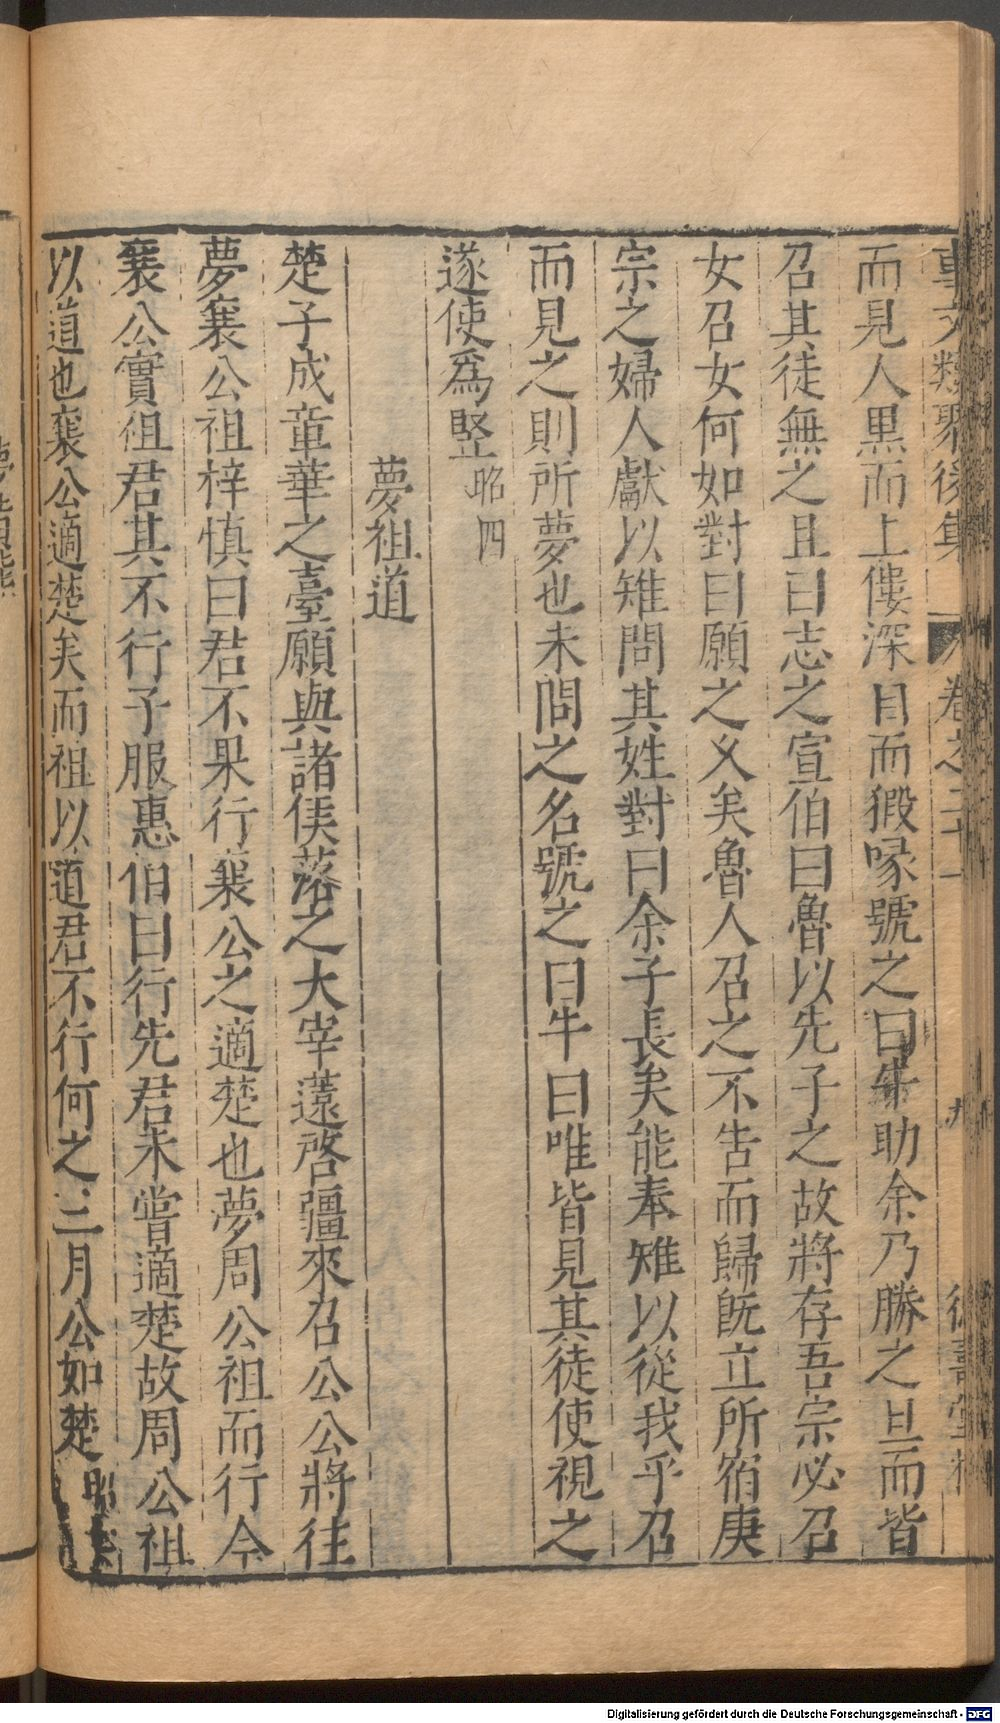 事文類聚後集 卷之二十一 九
而見人黒而上僂深目而猳喙號之曰牛助余乃勝之旦而皆
召其徒無之且曰志之宣伯曰魯以先子之故將存吾宗必召
女召女何如對曰願之乆矣魯人召之不告而歸旣立所宿庚
宗之婦人獻以雉問其姓對曰余子長矣能奉雉以從我乎召
而見之則所夢也未問之名號之曰牛曰唯皆見其徒使視之
遂使爲竪昭四
夢祖道
楚子成章華之臺願與諸侯落之大宰薳啓彊來召公公將往
夢襄公祖梓慎曰君不果行襄公之適楚也夢周公祖而行今
襄公實徂君其不行子服惠伯曰行先君未嘗適楚故周公祖
以道也襄公適楚矣而祖以道君不行何之三月公如楚昭
Digitalisierung gefördert durch die Deutsche Forschungsgemeinschaft - DFG